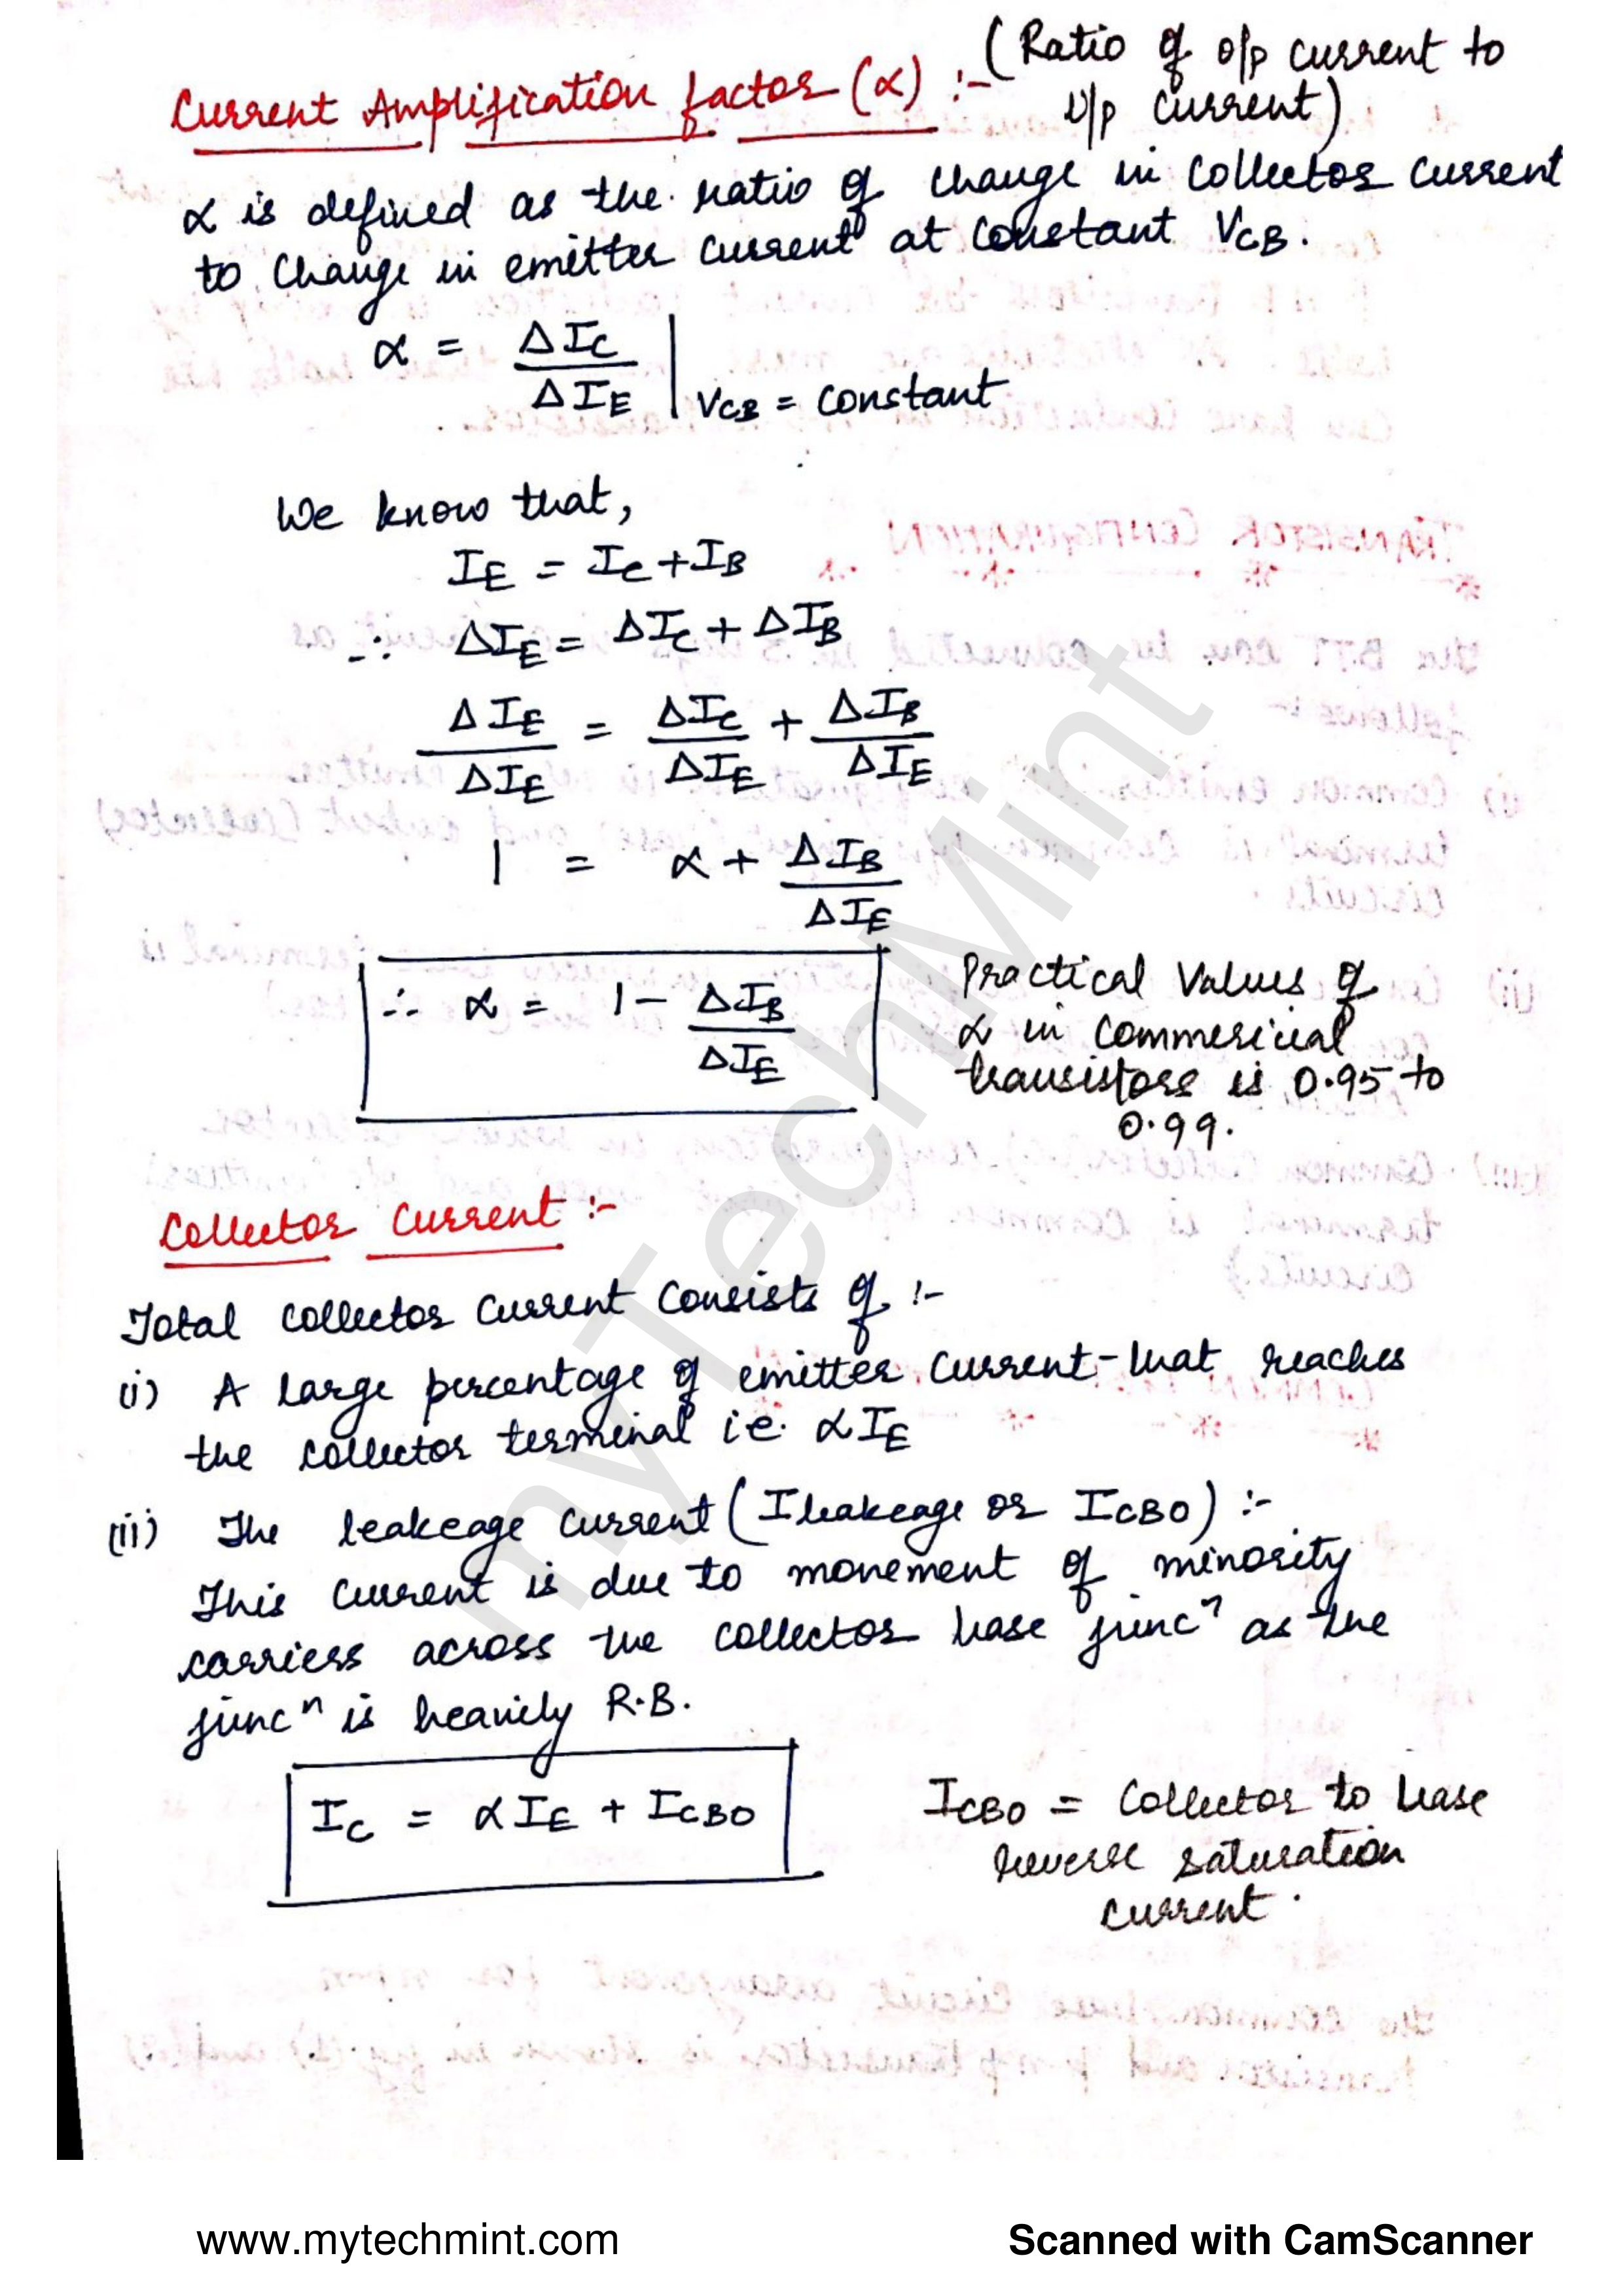 Current Amplification factor (α) :- (Ratio of o/p current to
i/p current)
α is defined as the ratio of change in collector current
to change in emitter current at constant VCB.
α = ΔIC / ΔIE | VCB = constant
We know that,
IE = IC + IB
∴ ΔIE = ΔIC + ΔIB
ΔIE / ΔIE = ΔIC / ΔIE + ΔIB / ΔIE
1 = α + ΔIB / ΔIE
∴ α = 1 - ΔIB / ΔIE
Practical Values of
α in commericial
transistors is 0.95 to
0.99.
Collector Current :-
Total collector current consists of :-
(i) A large percentage of emitter current that reaches
the collector terminal i.e. αIE
(ii) The leakeage current (Ileakeage or ICBO) :-
This current is due to movement of minority
carriers across the collector base juncn as the
juncn is heavily R.B.
IC = αIE + ICBO
ICBO = Collector to base
reverse saturation
current.
myTechMint
www.mytechmint.com
Scanned with CamScanner